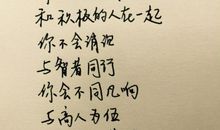 和积极的人在一起
你不会消沉
与智者同行
你会不同凡响
与高人为伍